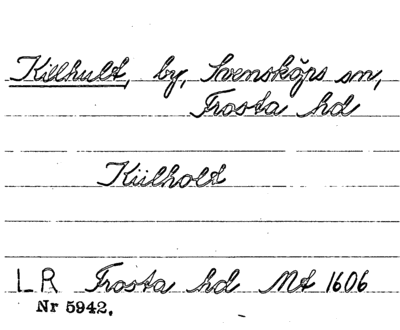 Killhult, by, Svensköps sn,
Frosta hd
Kiilholt
LR Frosta hd Mt 1606
Nr 5942.